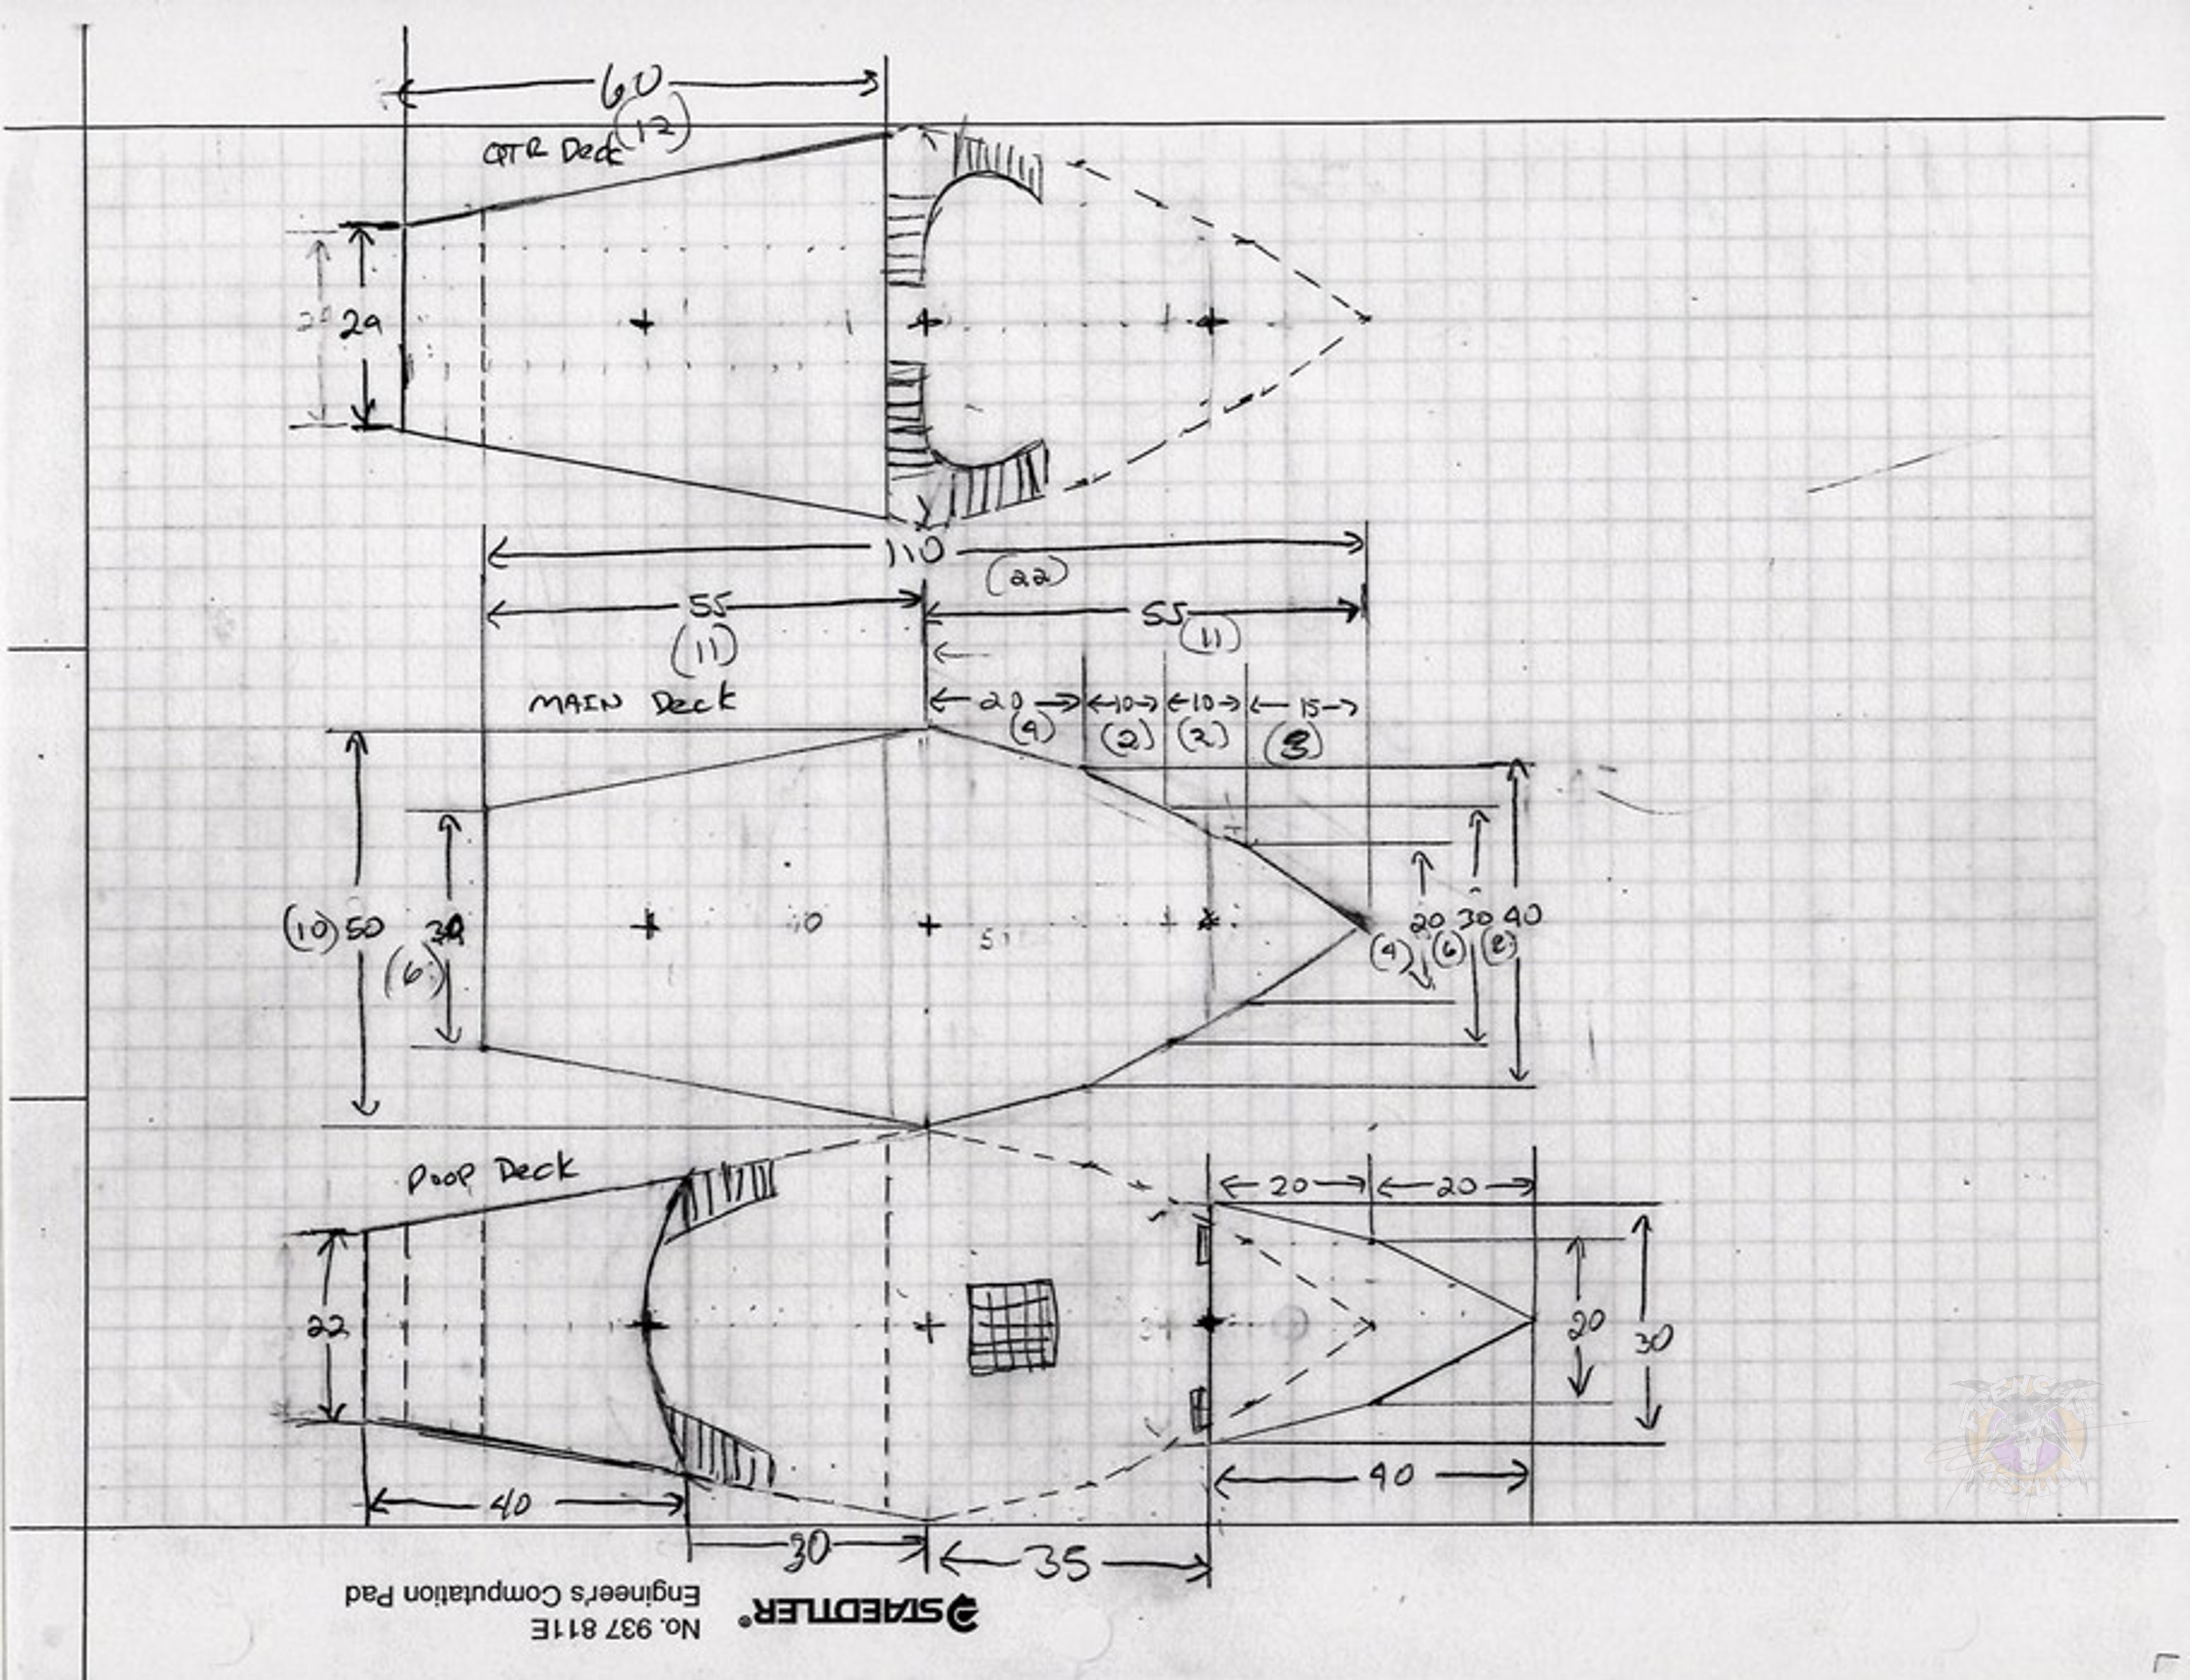 60
QTR Deck (12)
24
110
(22)
55
(11)
55
(11)
MAIN Deck
20
(4)
10
(2)
10
(2)
15
(3)
(10) 50
30
(6)
20 30 40
(4) (6) (8)
POOP Deck
20
20
22
20
30
40
40
30
35
STAEDTLER®
No. 937 811E
Engineer's Computation Pad